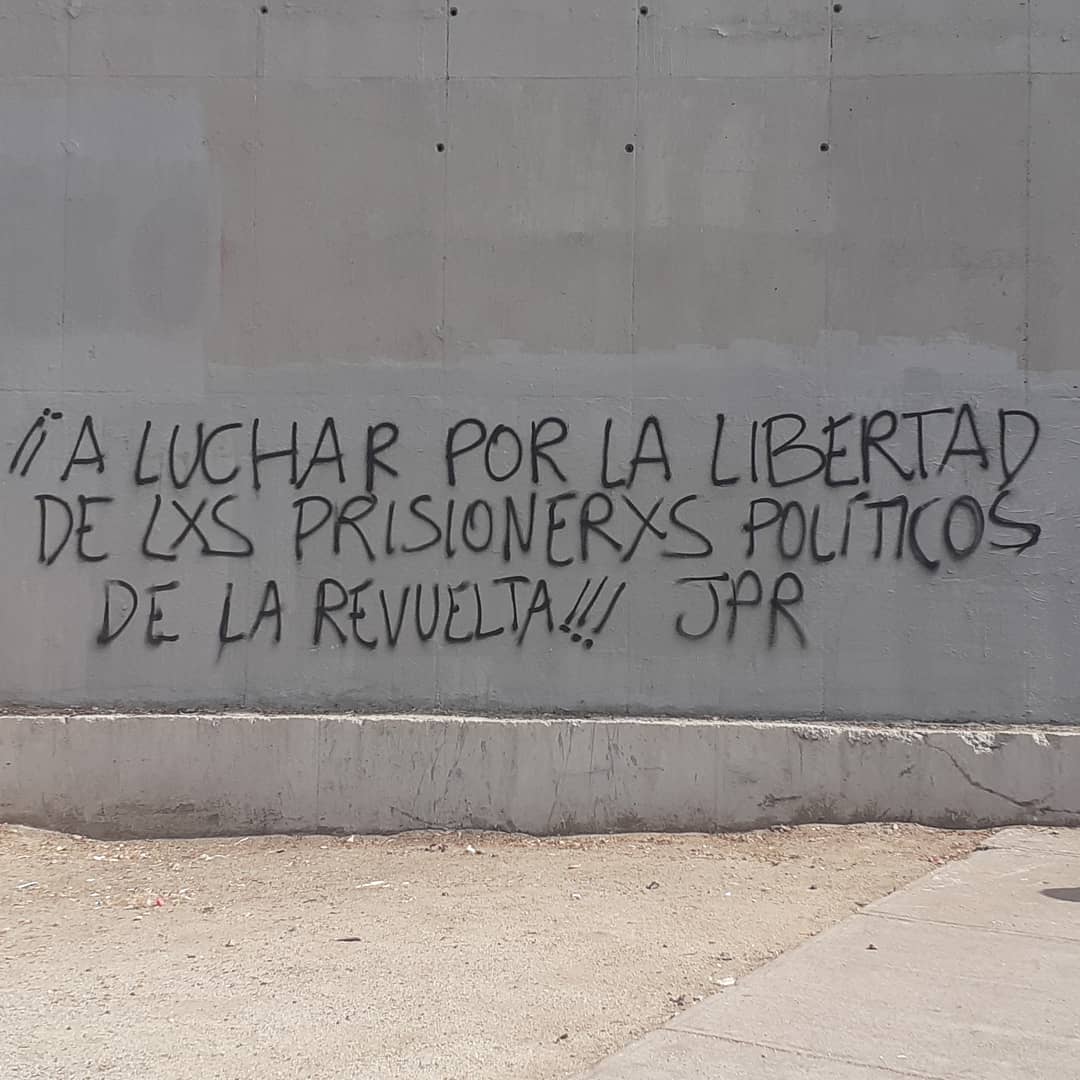 ¡¡A LUCHAR POR LA LIBERTAD
DE LXS PRISIONERXS POLÍTICOS
DE LA REVUELTA!!! JPR